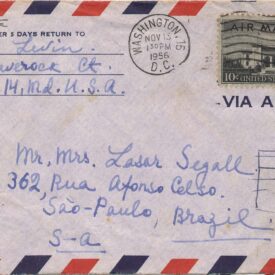 ER 5 DAYS RETURN TO
Levin
verock Ct.
14, Md. U.S.A.
WASHINGTON, 15
NOV 13
1 30 PM
1956
D.C.
AIR M
10¢ UNITED S
VIA A
Mr. Mrs. Lasar Segall
362, Rua Afonso Celso.
São-Paulo, Brazil
S-a